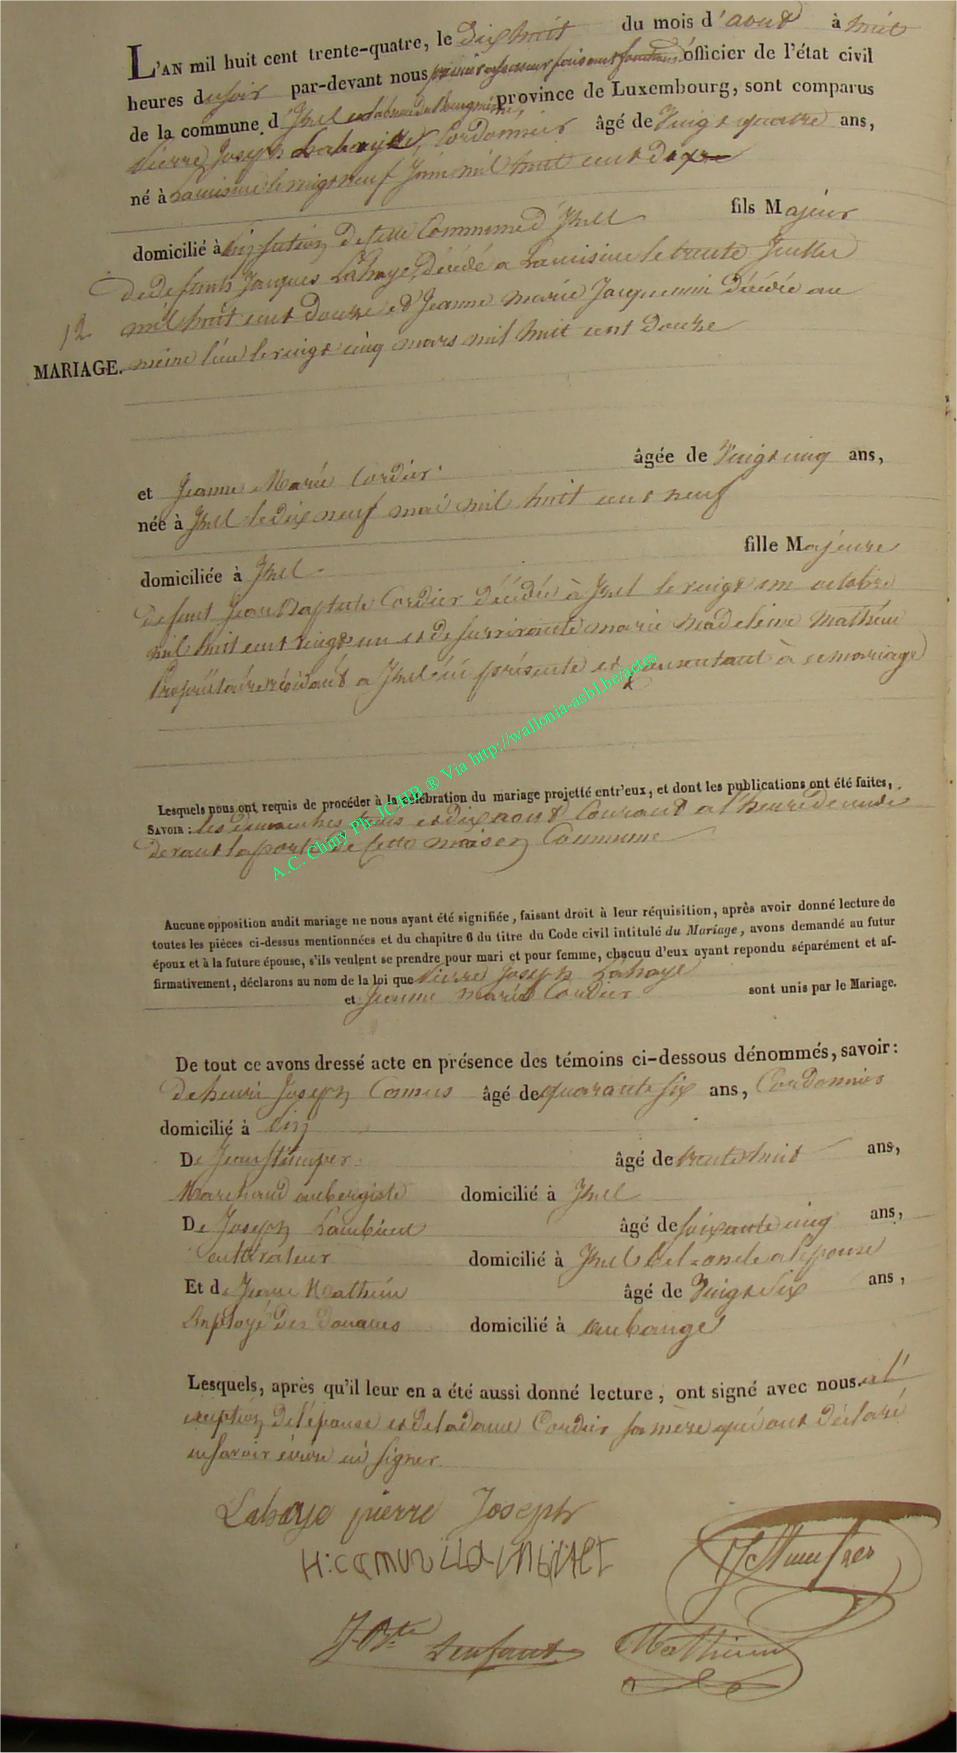 L'AN mil huit cent trente-quatre, le dix huit du mois d'aout à huit
heures du soir par-devant nous premier assesseur faisant fonctions d'officier de l'état civil
de la commune d'Izel province de Luxembourg, sont comparus
Pierre Joseph Lahaye, Cordonnier âgé de Vingt quatre ans,
né à Lacuisine le vingt neuf Juin mil huit cent dix
domicilié à Cette Commune d'Izel fils Majeur
de defunts Jacques Lahaye, Décédé a Lacuisine le trente Juillet
12 mil huit cent douze et d'Jeanne Marie Jacquemin Décédée au
MARIAGE. meme lieu le vingt cinq mars mil huit cent Douze
et Jeanne Marie Cordier âgée de Vingt cinq ans,
née à Izel le dix neuf mai mil huit cent neuf
domiciliée à Izel fille Majeure
de feut Jean Baptiste Cordier décédé à Izel le vingt un octobre
mil huit cent vingt un et de survivante marie Madeleine Mathieu
Propriétaire résidant a Izel ici présente et consentant à ce mariage
Lesquels nous ont requis de procéder à la célébration du mariage projetté entr'eux, et dont les publications ont été faites,
SAVOIR : les dimanches trois et dix aout Courant a l'heure de midi
devant la porte de Cette maison Commune
Aucune opposition audit mariage ne nous ayant été signifiée, faisant droit à leur réquisition, après avoir donné lecture de
toutes les pièces ci-dessus mentionnées et du chapitre 6 du titre du Code civil intitulé du Mariage, avons demandé au futur
époux et à la future épouse, s'ils veulent se prendre pour mari et pour femme, chacun d'eux ayant repondu séparément et af-
firmativement, déclarons au nom de la loi que Pierre Joseph Lahaye
et Jeanne Marie Cordier sont unis par le Mariage.
De tout ce avons dressé acte en présence des témoins ci-dessous dénommés, savoir :
De henri Joseph Camus âgé de quarante six ans, Cordonnier
domicilié à
De Jean âgé de trente huit ans,
Marchand aubergiste domicilié à Izel
De Joseph Lambinet âgé de soixante cinq ans,
cultivateur domicilié à Izel Bel-oncle a l'épouse
Et de Jean Mathieu âgé de Vingt Six ans,
Employé des Douanes domicilié à aubange
Lesquels, après qu'il leur en a été aussi donné lecture, ont signé avec nous a l'
exception De l'épouse et de la dame Cordier sa mère qui ont déclaré
ne savoir écrire ni signer
Lahaye pierre Joseph
H: camus Lambinet
J. Bte Lenfant Mathieu
A.C. Chiny Ph. JCHB ® Via http://wallonia-asbl.be/actes